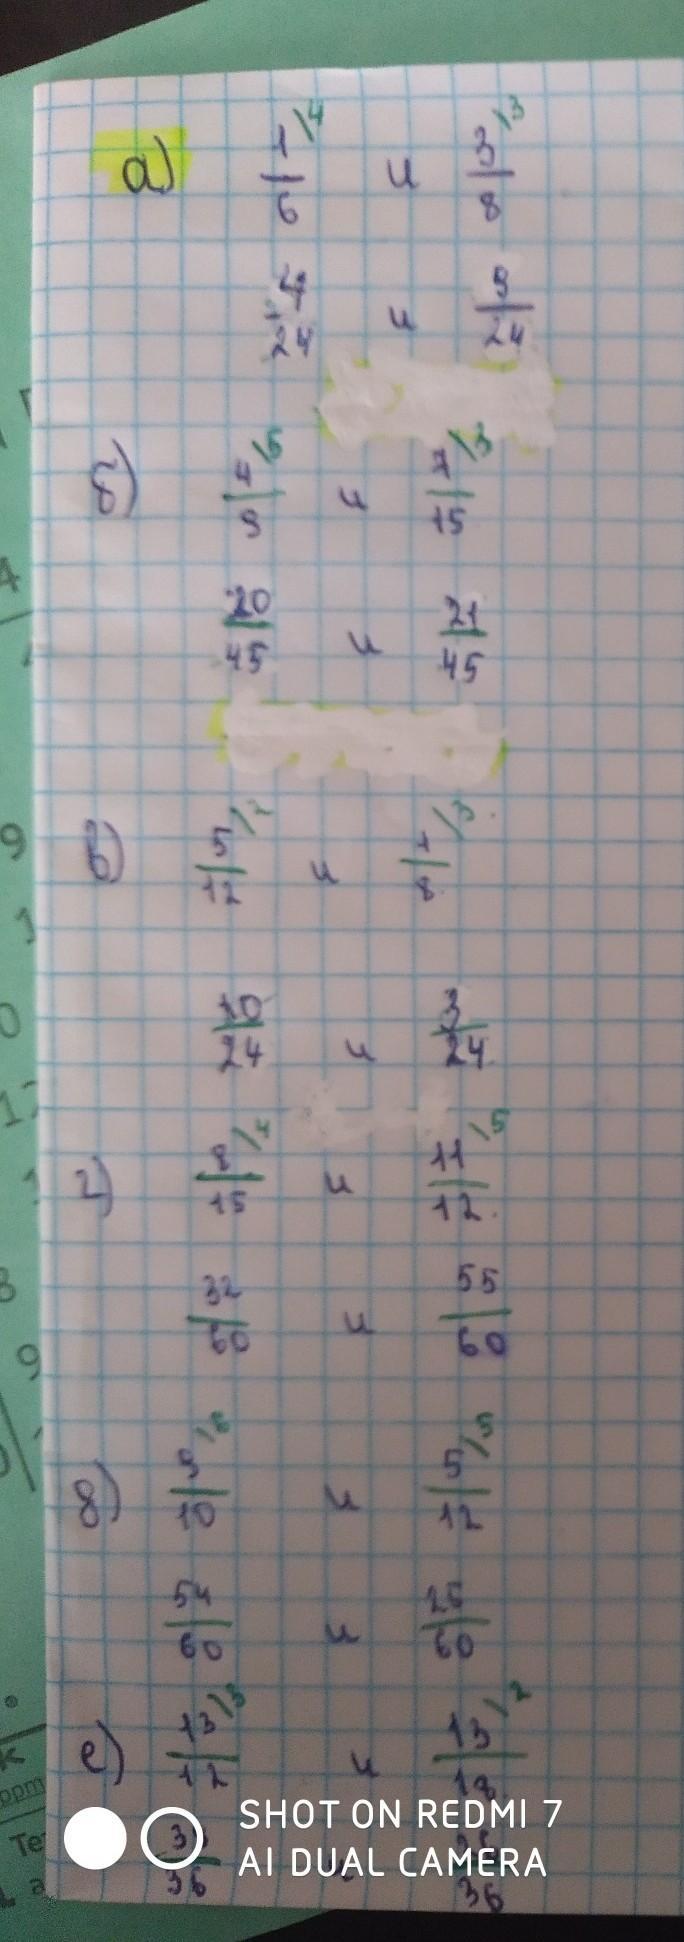 а) 1/6 \4 и 3/8 \3
4/24 и 9/24
б) 4/9 \5 и 7/15 \3
20/45 и 21/45
в) 5/12 \2 и 1/8 \3
10/24 и 3/24
г) 8/15 \4 и 11/12 \5
32/60 и 55/60
д) 9/10 \6 и 5/12 \5
54/60 и 25/60
е) 13/12 \3 и 13/18 \2
36 и 36
SHOT ON REDMI 7
AI DUAL CAMERA